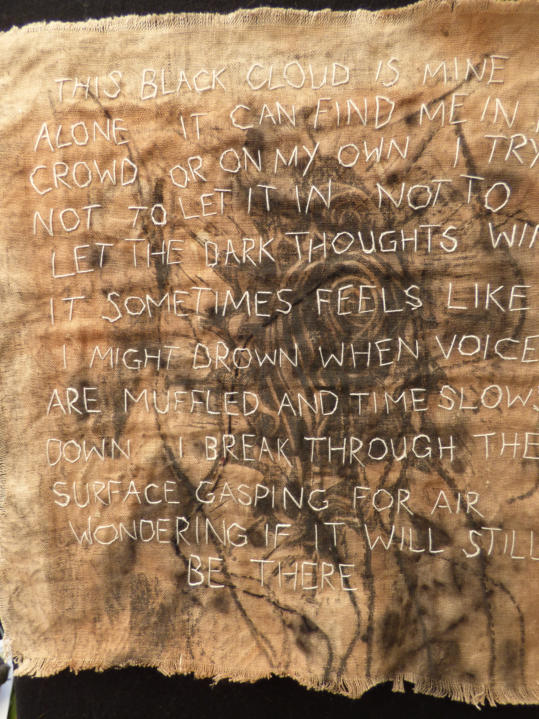 THIS BLACK CLOUD IS MINE
ALONE IT CAN FIND ME IN
CROWD OR ON MY OWN I TRY
NOT TO LET IT IN NOT TO
LET THE DARK THOUGHTS WIN
IT SOMETIMES FEELS LIKE
I MIGHT DROWN WHEN VOICE
ARE MUFFLED AND TIME SLOWS
DOWN I BREAK THROUGH THE
SURFACE GASPING FOR AIR
WONDERING IF IT WILL STILL
BE THERE